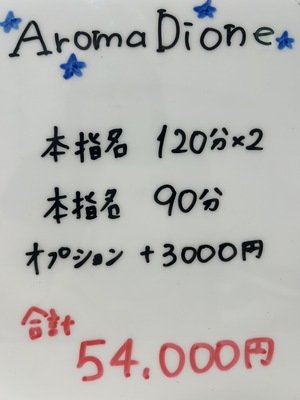 AromaDione
本指名 120分×2
本指名 90分
オプション +3000円
合計
54.000円